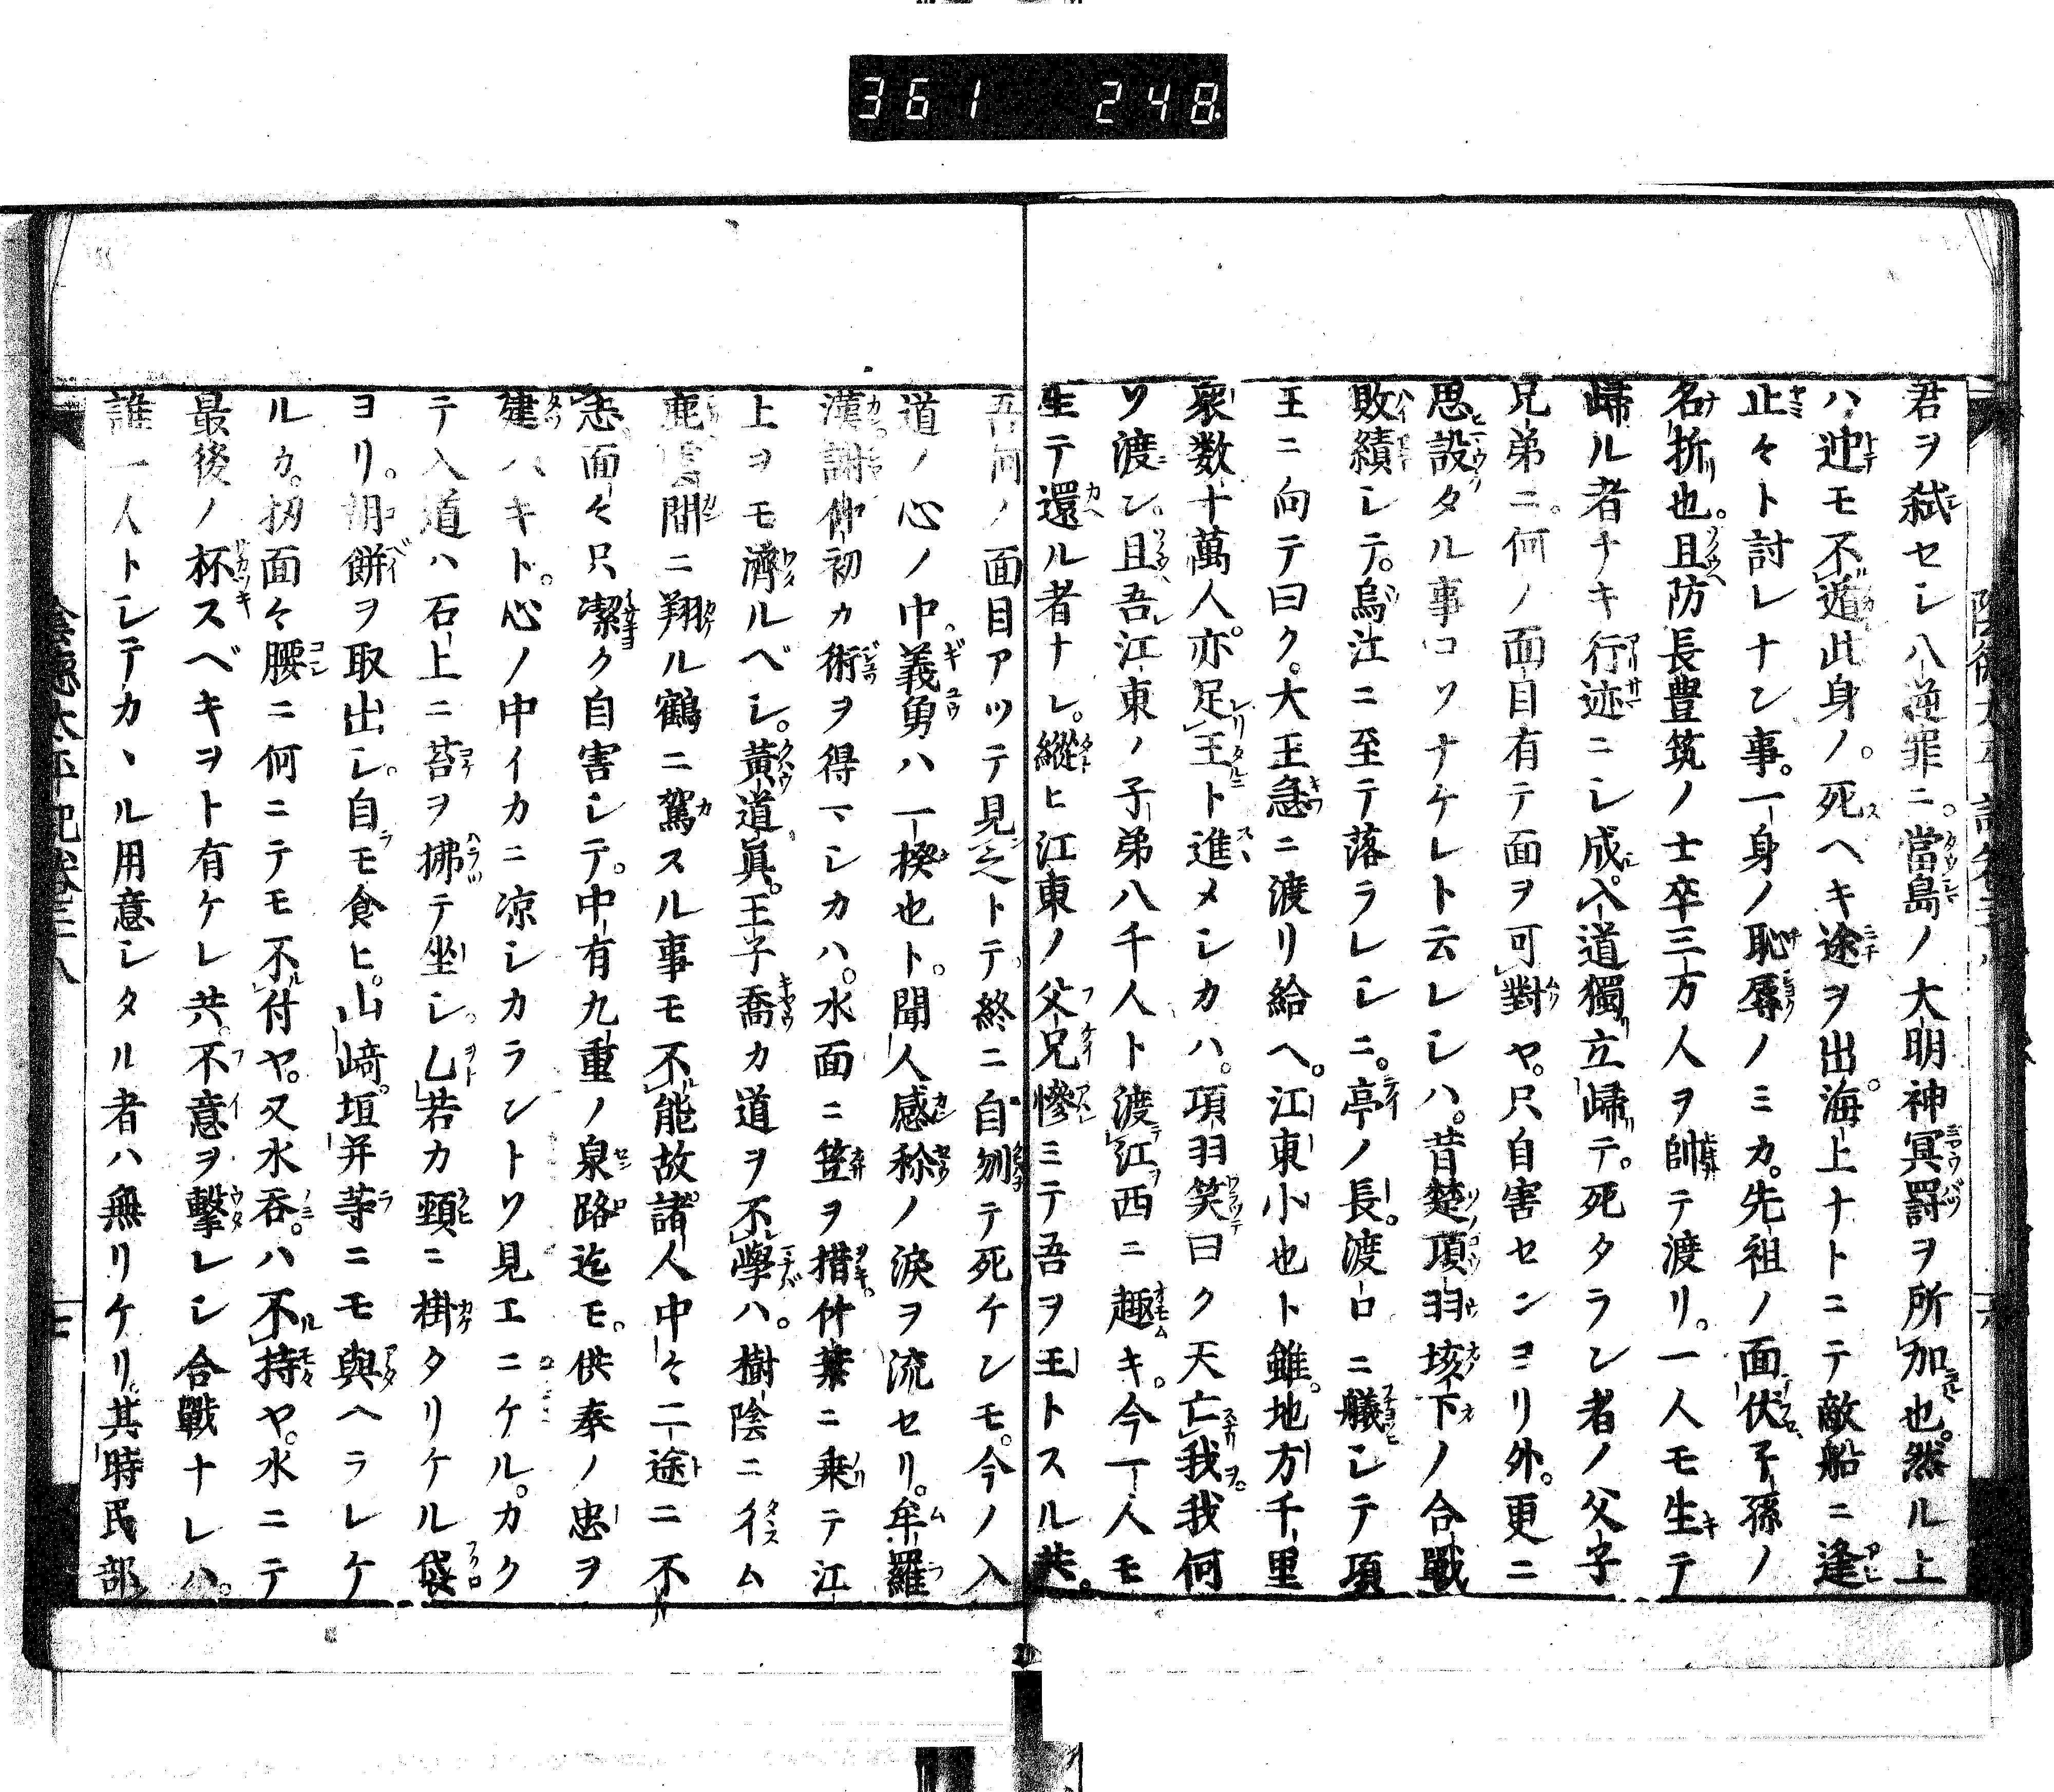 361 248
君ヲ弑セシ八逆罪ニ當島ノ大明神冥罰ヲ所加也然ル上
ハ迚モ不遁此身ノ死ヘキ途ヲ出海上ナトニテ敵船ニ逢
止々ト討レナン事一身ノ恥辱ノミカ先祖ノ面伏子孫ノ
名折也且防長豊筑ノ士卒三万人ヲ帥テ渡リ一人モ生テ
歸ル者ナキ行迹ニシ成入道獨立歸テ死タラン者ノ父子
兄弟ニ何ノ面目有テ面ヲ可對ヤ只自害センヨリ外更ニ
思設タル事コソナケレト云レシハ昔楚項羽垓下ノ合戰
敗績シテ烏江ニ至テ落ラレシニ亭ノ長渡口ニ艤シテ項
王ニ向テ曰ク大王急ニ渡リ給ヘ江東小也ト雖地方千里
衆数十萬人亦足王ト進メシカハ項羽笑曰ク天亡我我何
ソ渡ン且吾江東ノ子弟八千人ト渡江西ニ趣キ今一人モ
生テ還ル者ナシ縱ヒ江東ノ父兄慘ミテ吾ヲ王トスル共
吾何ノ面目アツテ見之トテ終ニ自刎テ死ケンモ今ノ入
道ノ心ノ中義勇ハ一揆也ト聞人感称ノ淚ヲ流セリ牟羅
漢謝仲初カ術ヲ得マシカハ水面ニ笠ヲ措竹葉ニ乗テ江
上ヲモ濟ルベシ黄道眞王子喬カ道ヲ不學ハ樹陰ニ彳ム
鹿雲間ニ翔ル鶴ニ駕スル事モ不能故諸人中々二途ニ不
志面々只潔ク自害シテ中有九重ノ泉路迄モ供奉ノ忠ヲ
建ハキト心ノ中イカニ凉シカラントソ見エニケルカク
テ入道ハ石上ニ苔ヲ拂テ坐シ乙若カ頸ニ掛タリケル袋
ヨリ胡餅ヲ取出シ自モ食ヒ山﨑垣并等ニモ與ヘラレケ
ルカ扨面々腰ニ何ニテモ不付ヤ又水呑ハ不持ヤ水ニテ
最後ノ杯スベキヲト有ケレ共不意ヲ擊レシ合戰ナレハ
誰一人トシテカヽル用意シタル者ハ無リケリ其時民部
陰德太平記卷三八